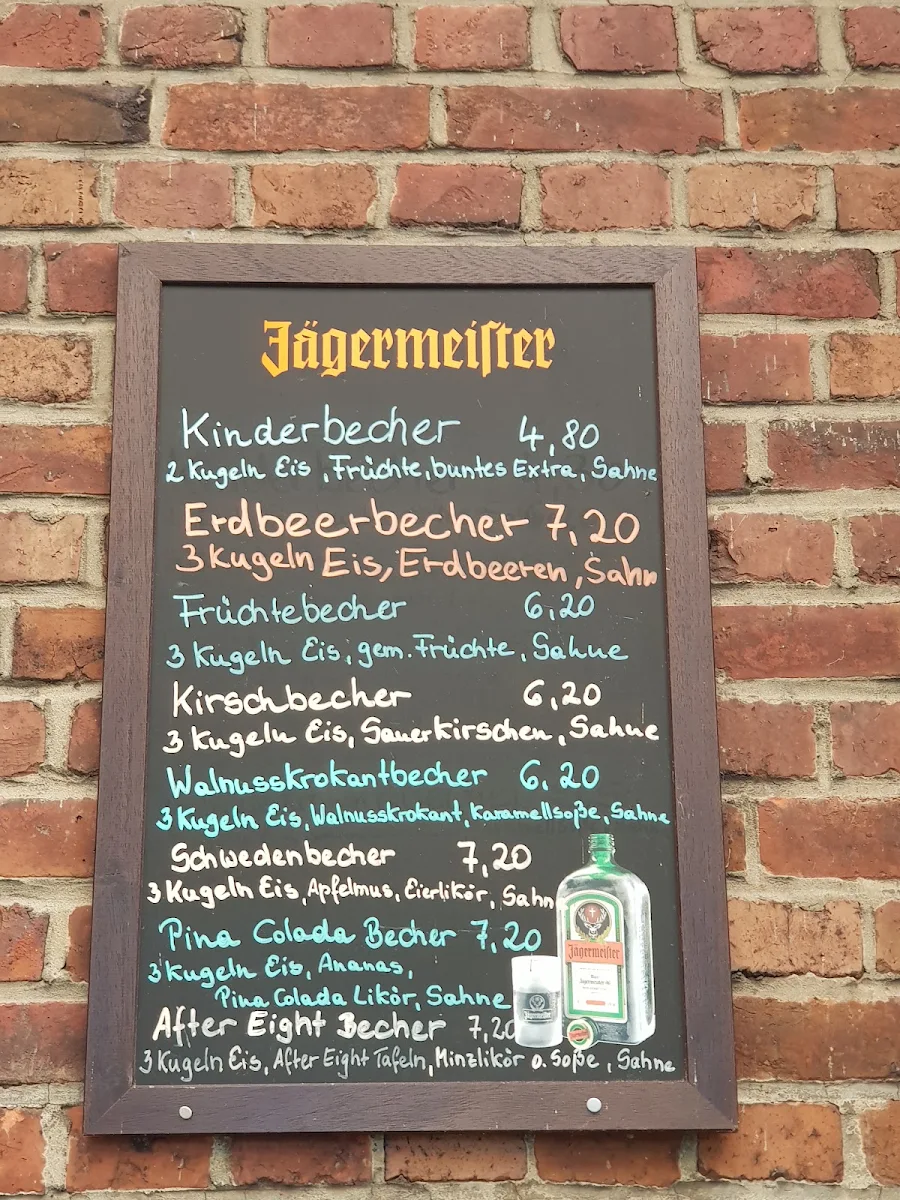 Jägermeister
Kinderbecher 4,80
2 Kugeln Eis, Früchte, buntes Extra, Sahne
Erdbeerbecher 7,20
3 Kugeln Eis, Erdbeeren, Sahn
Früchtebecher 6,20
3 Kugeln Eis, gem. Früchte, Sahne
Kirschbecher 6,20
3 Kugeln Eis, Sauerkirschen, Sahne
Walnusskrokantbecher 6.20
3 Kugeln Eis, Walnusskrokant, Karamellsoße, Sahne
Schwedenbecher 7,20
3 Kugeln Eis, Apfelmus, Eierlikör, Sahn
Pina Colada Becher 7,20
3 Kugeln Eis, Ananas,
Pina Colada Likör, Sahne
After Eight Becher 7,20
3 Kugeln Eis, After Eight Tafeln, Minzlikör o. Soße, Sahne
Jägermeister
Jägermeister